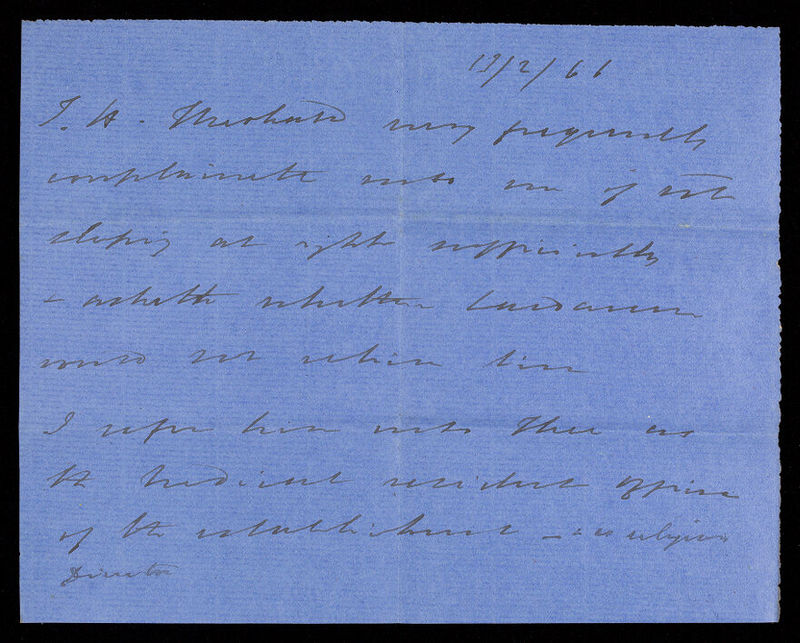 13/2/66
J. H. very frequently
complaineth unto me of not
sleeping at night sufficiently
& asketh whether Laudanum
would not relieve him
I refer him unto Thee as
the Medical resident Officer
of the establishment - as religious
Director